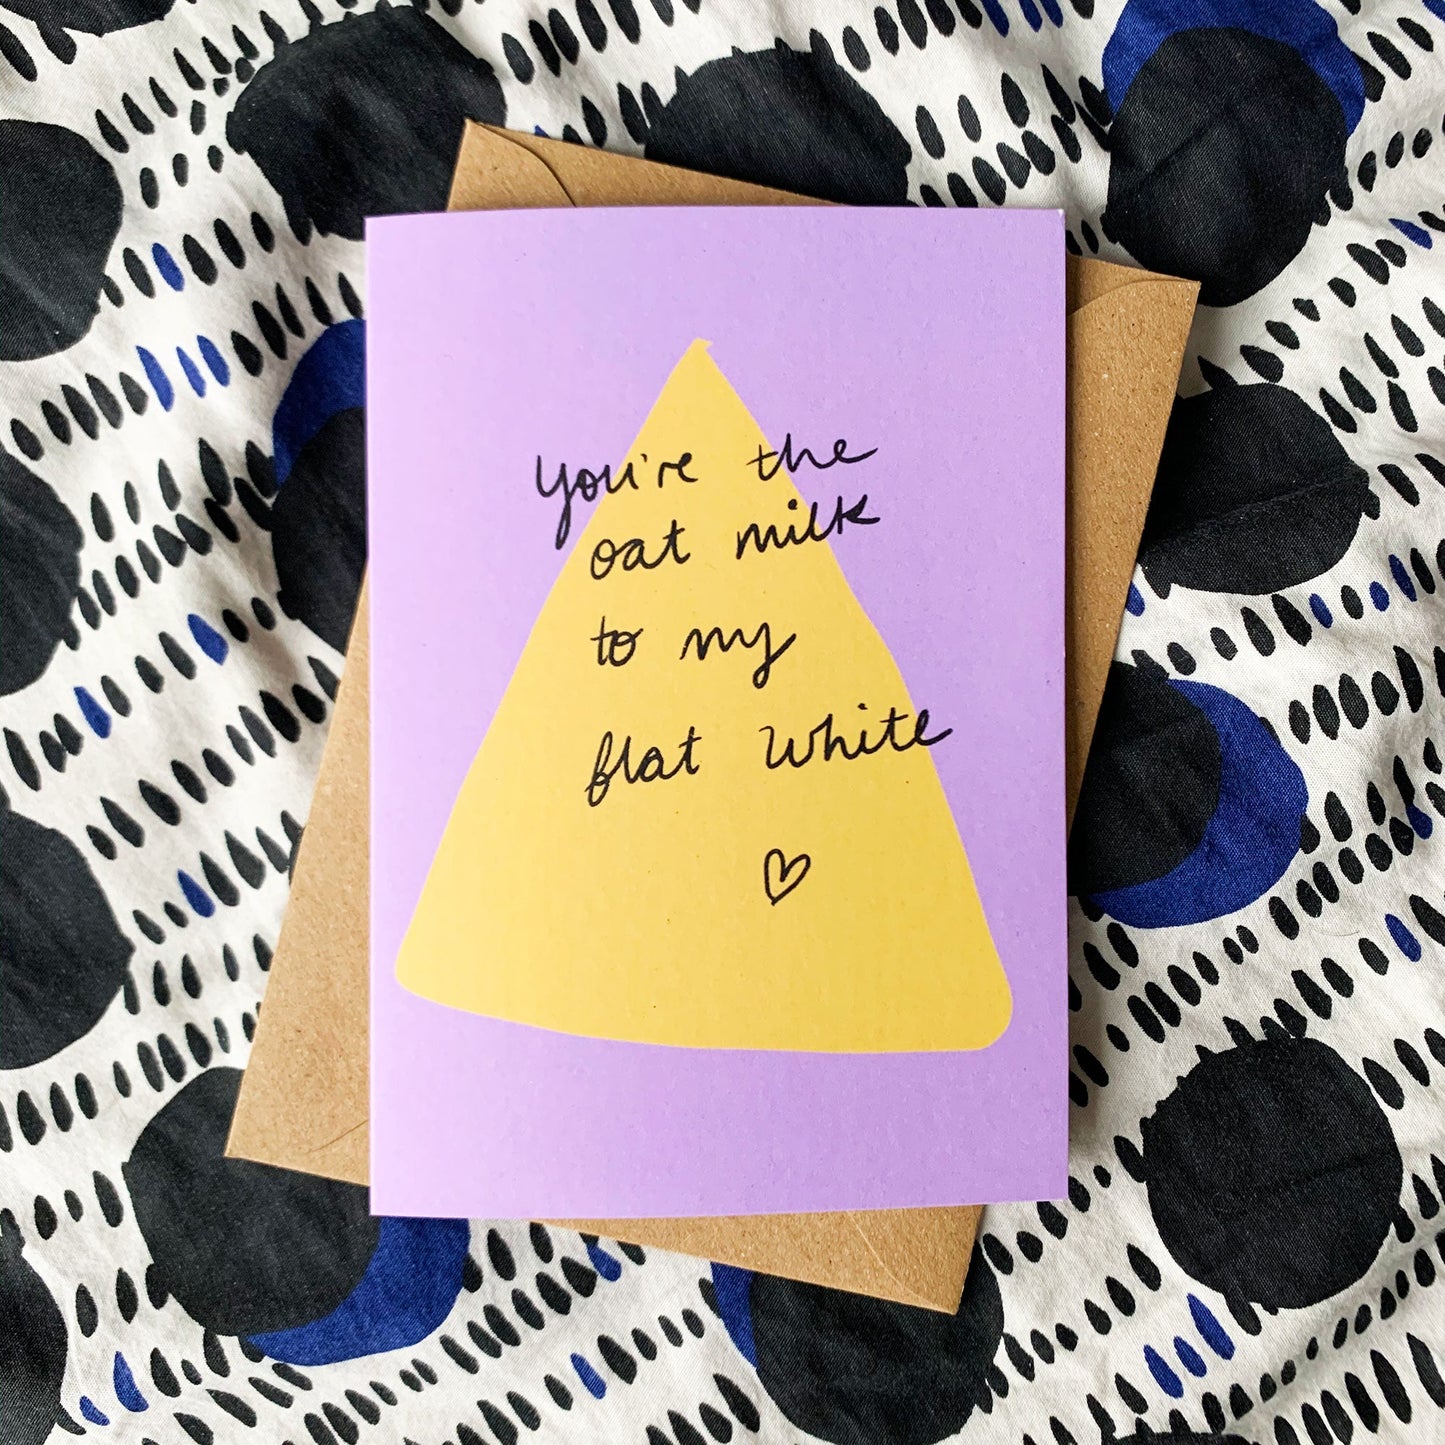 you're the
oat milk
to my
flat white
♡